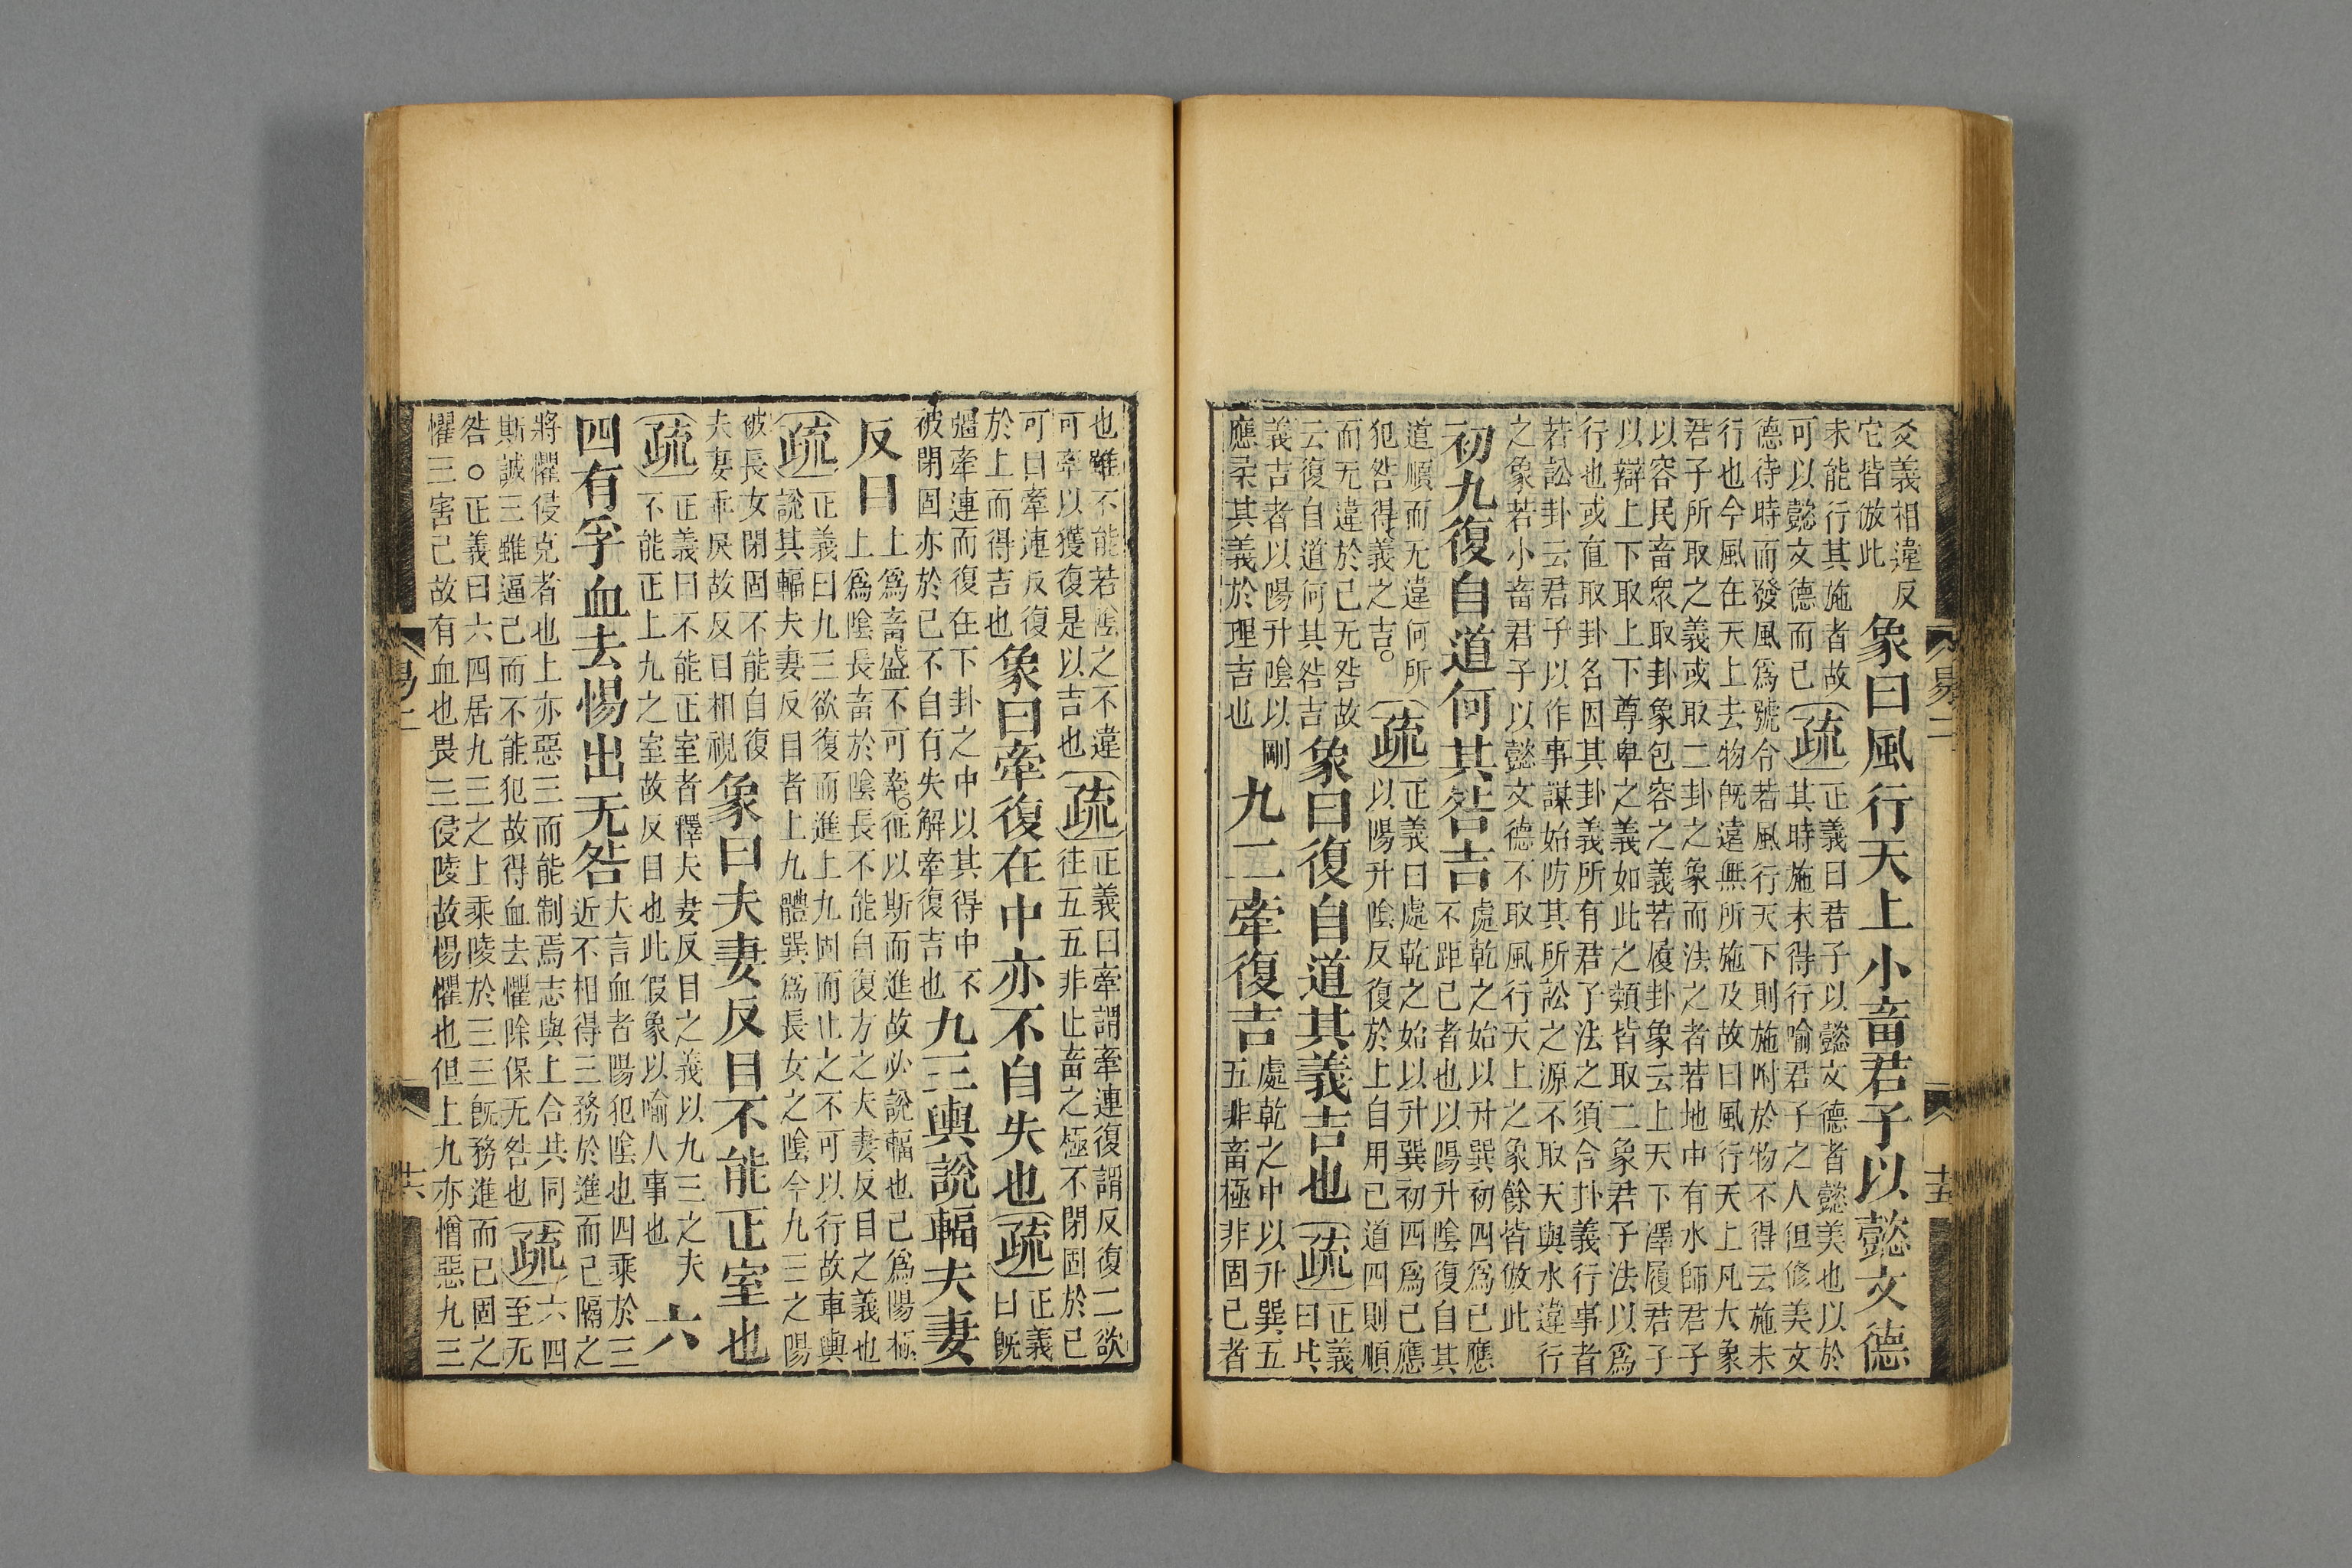 爻義相違反
它皆倣此
象曰風行天上小畜君子以懿文德
未能行其施者故
可以懿文德而已
疏
正義曰君子以懿文德者懿美也以於
其時施未得行喻君子之人但修美文
德待時而發風爲號令若風行天下則施附於物不得云施未
行也今風在天上去物旣遠無所施及故曰風行天上凡大象
君子所取之義或取二卦之象而法之者若地中有水師君子
以容民畜衆取卦象包容之義若履卦象云上天下澤履君子
以辯上下取上下尊卑之義如此之類皆取二象君子法以爲
行也或直取卦名因其卦義所有君子法之須合卦義行事者
若訟卦云君子以作事謀始防其所訟之源不取天與水違行
之象若小畜君子以懿文德不取風行天上之象餘皆倣此
初九復自道何其咎吉
處乾之始以升巽初四爲己應
不距己者也以陽升陰復自其
道順而无違何所
犯咎得義之吉。
疏
正義曰處乾之始以升巽初四爲己應
以陽升陰反復於上自用己道四則順
而无違於己无咎故
云復自道何其咎吉
象曰復自道其義吉也
疏
正義
曰其
義吉者以陽升陰以剛
應柔其義於理吉也
九二牽復吉
處乾之中以升巽五
五非畜極非固己者
易二
十五
也雖不能若陰之不違
可牽以獲復是以吉也
疏
正義曰牽謂牽連復謂反復二欲
往五五非止畜之極不閉固於己
可曰牽連反復
於上而得吉也
象曰牽復在中亦不自失也
疏
正義
曰旣
彊牽連而復在下卦之中以其得中不
被閉固亦於己不自有失解牽復吉也
九三輿說輻夫妻
反目
上爲畜盛不可牽。征以斯而進故必說輻也己爲陽極
上爲陰長畜於陰長不能自復方之夫妻反目之義也
疏
正義曰九三欲復而進上九固而止之不可以行故車輿
說其輻夫妻反目者上九體巽爲長女之陰今九三之陽
被長女閉固不能自復
夫妻乖戾故反目相視
象曰夫妻反目不能正室也
疏
正義曰不能正室者釋夫妻反目之義以九三之夫
不能正上九之室故反目也此假象以喻人事也
六
四有孚血去惕出无咎
夫言血者陽犯陰也四乘於三
近不相得三務於進而己隔之
將懼侵克者也上亦惡三而能制焉志與上合共同
斯誠三雖逼己而不能犯故得血去懼除保无咎也
疏
六四
至无
咎○正義曰六四居九三之上乘陵於三三旣務進而己固之
懼三害己故有血也畏三侵陵故惕懼也但上九亦憎惡九三
易二
十六